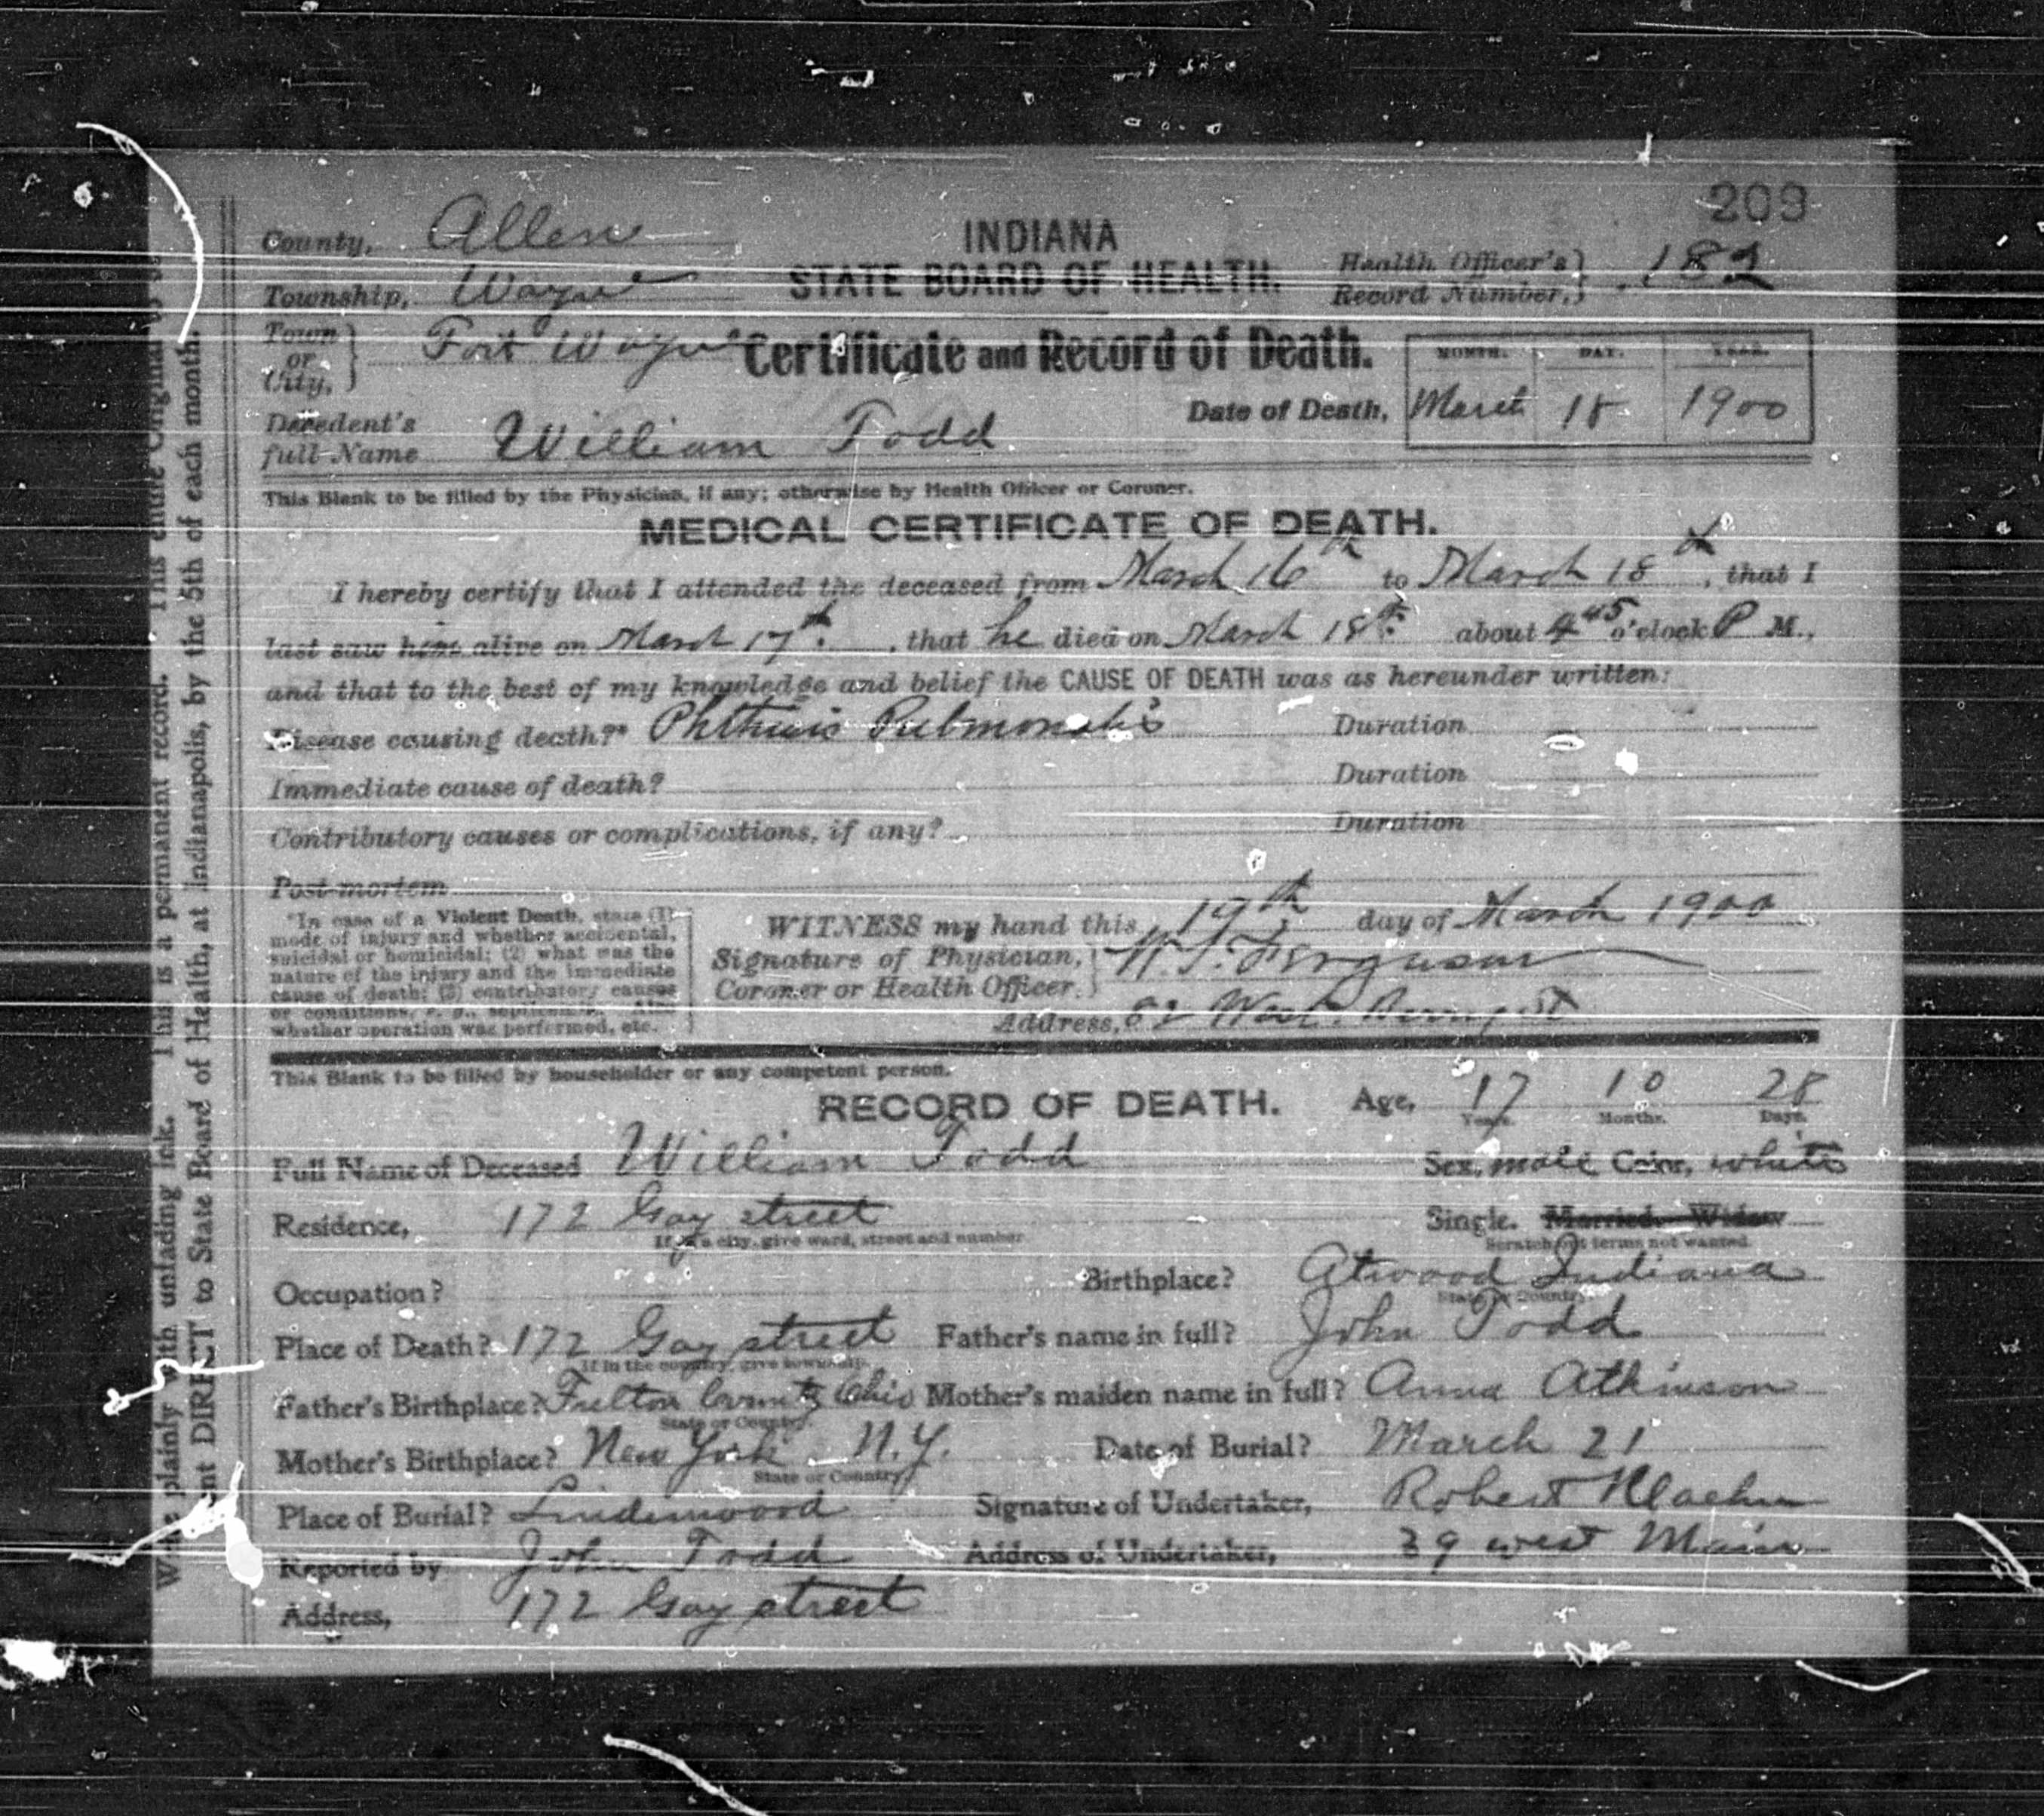 209
County, Allen
INDIANA
Township, Wayne
STATE BOARD OF HEALTH.
Health Officer's Record Number, 182
Town or City, Fort Wayne
Certificate and Record of Death.
MONTH. DAY. YEAR.
Date of Death, March 18 1900
Decedent's full Name William Todd
This Blank to be filled by the Physician, if any; otherwise by Health Officer or Coroner.
MEDICAL CERTIFICATE OF DEATH.
I hereby certify that I attended the deceased from March 16th to March 18th, that I
last saw him alive on March 17th, that he died on March 18th about 4 45 o'clock P M.,
and that to the best of my knowledge and belief the CAUSE OF DEATH was as hereunder written:
Disease causing death?* Phthisis Pulmonalis Duration
Immediate cause of death? Duration
Contributory causes or complications, if any? Duration
Post-mortem
*In case of a Violent Death, state (1)
mode of injury and whether accidental,
suicidal or homicidal; (2) what was the
nature of the injury and the immediate
cause of death; (3) contributory causes
or conditions, e. g., septicemia. Also
whether operation was performed, etc.
WITNESS my hand this 19th day of March 1900
Signature of Physician, Coroner or Health Officer, Ferguson
Address, West St
This Blank to be filled by householder or any competent person.
RECORD OF DEATH. Age, 17 10 28
Years. Months. Days.
Full Name of Deceased William Todd Sex, male Color, white
Residence, 172 Gay street Single. Married. Widow
If in a city, give ward, street and number. Scratch out terms not wanted.
Occupation? Birthplace? Atwood Indiana
State or Country.
Place of Death? 172 Gay street Father's name in full? John Todd
If in the country, give township.
Father's Birthplace? Fulton County Ohio Mother's maiden name in full? Anna Atkinson
State or Country.
Mother's Birthplace? New York N.Y. Date of Burial? March 21
State or Country.
Place of Burial? Lindenwood Signature of Undertaker, Robert Klaehn
Reported by John Todd Address of Undertaker, 39 west Main
Address, 172 Gay street
Write plainly with unfading ink. This is a permanent record. This entire Original to be
sent DIRECT to State Board of Health, at Indianapolis, by the 5th of each month.